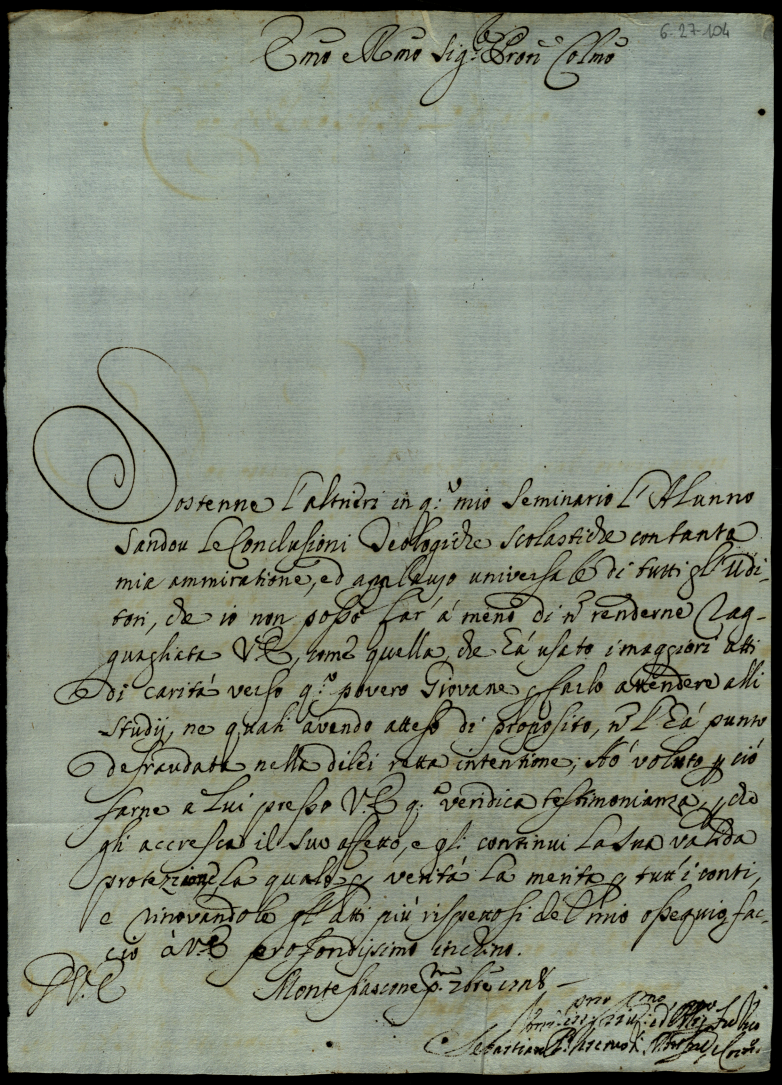 6-27-104
Emo e Rmo Sig:re Pron Colmo
Sostenne l'altrieri in q:o mio Seminario l'Alunno
Sandou le Conclusioni Teologiche scolastiche con tanta
mia ammiratione, ed applauso universale di tutti gl'Udi-
tori, che io non posso far' á meno di nõ renderne rag-
guagliata V.E., come quella, che há usato i maggiori atti
di carità verso q:o povero Giovane p farlo attendere alli
Studij, ne quali avendo atteso di proposito, nõ l'há punto
defraudata nella di lei retta intentione; Hó voluto p ció
farne a lui presso V.E. q:a veridica testimonianza, p che
gli accresca il suo affetto, e gli continui la sua valida
protezione la quale p verità la merita p tutt'i conti,
e rinovandole gl'atti più rispettosi del mio ossequio, fac-
cio à V.E. profondissimo inchino.
D V.E. Montefiascone p:mo 7bre 1718
Sebastiano